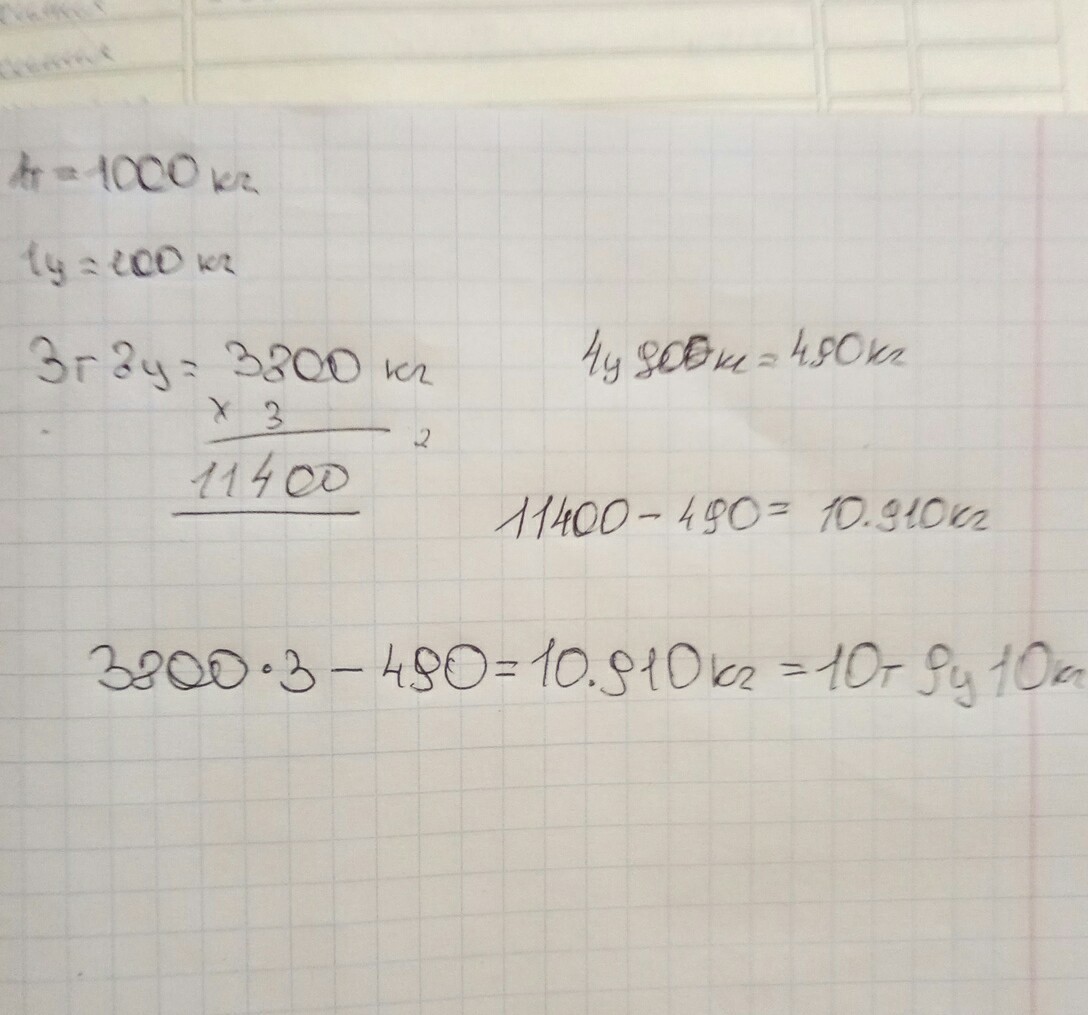 1т = 1000 кг
1ц = 100 кг
3т 8ц = 3800 кг
4ц 90 кг = 490 кг
× 3
2
11400
11400 - 490 = 10.910 кг
3800 · 3 - 490 = 10.910 кг = 10т 9ц 10 кг